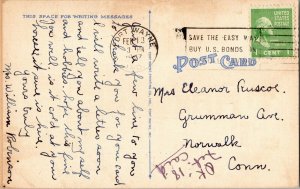 THIS SPACE FOR WRITING MESSAGES
Just a few line to you
to thank you for your card
I will write a letter soon
and tell you about my self
and hubbie, hope this find
you well, it is cold at your
Yours truly
Mrs William Robinson
FORT WAYNE
FEB
SAVE THE EASY WAY
BUY U.S. BONDS
UNITED STATES
POSTAGE
1 CENT 1
POST CARD
Mrs Eleanor Ruscoe
Grumman Ave
Norwalk
Conn.